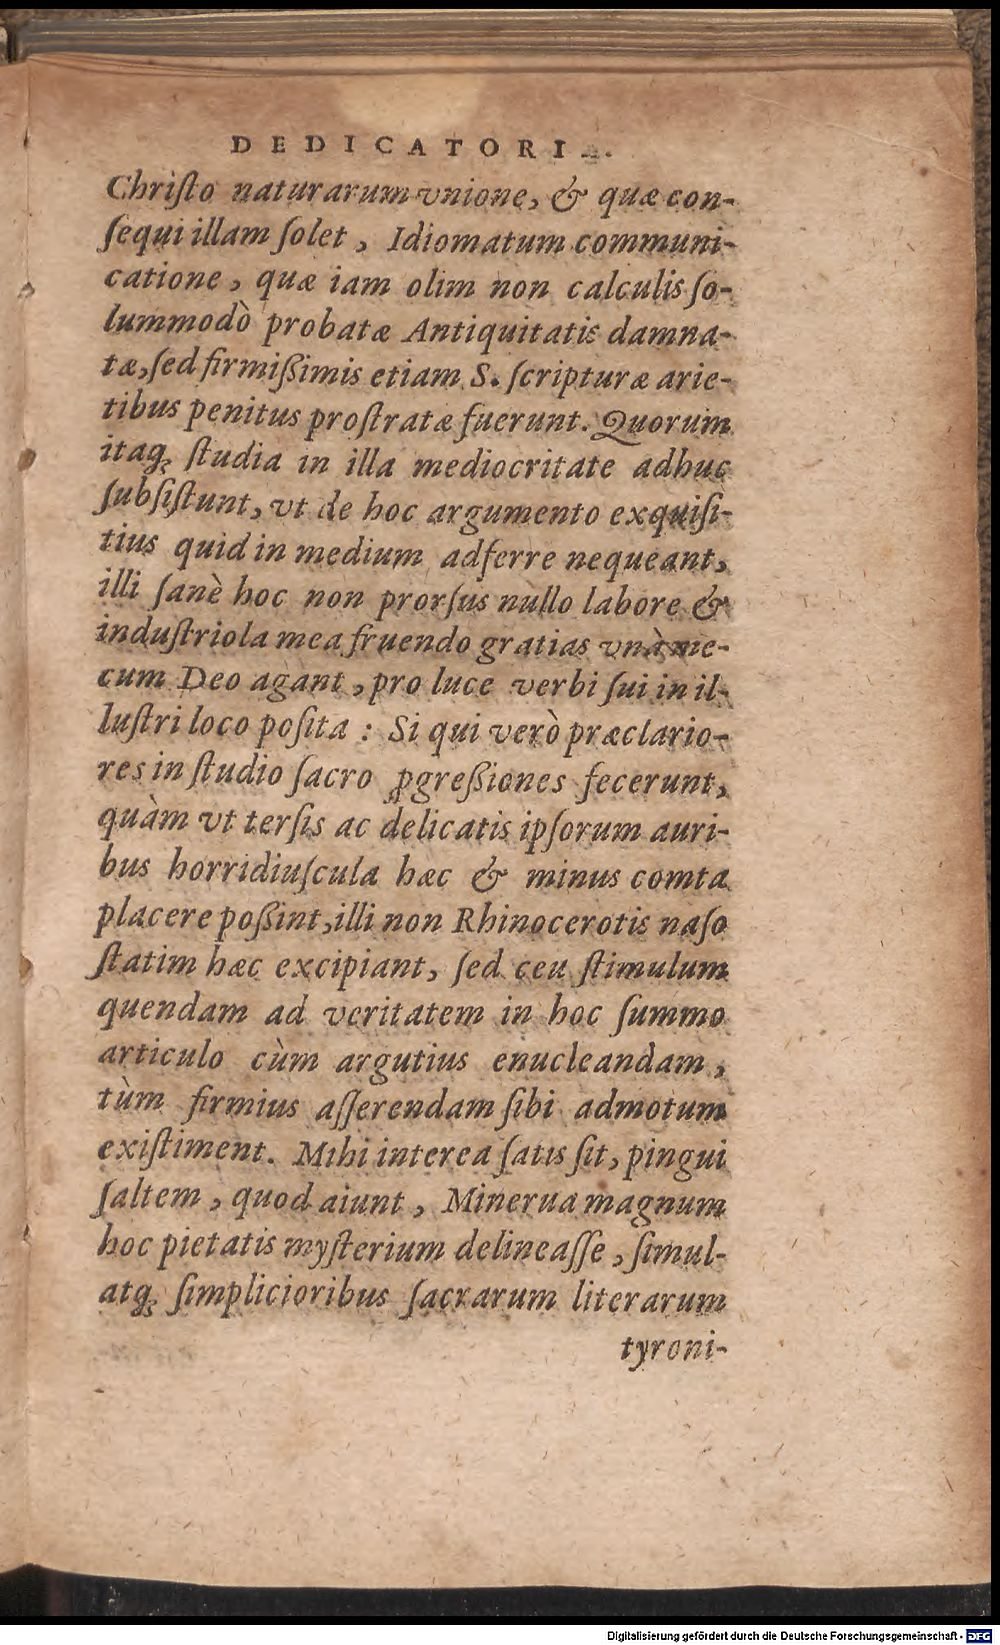 DEDICATORI
Chriſto naturarum vnione, & quæ con-
ſequi illam ſolet, Idiomatum communi-
catione, quæ iam olim non calculis ſo-
lummodò probatæ Antiquitatis damna-
tæ, ſed firmißimis etiam S. ſcripturæ arie-
tibus penitus proſtratæ fuerunt. Quorum
itaq; ſtudia in illa mediocritate adhuc
ſubſiſtunt, vt de hoc argumento exquiſi-
tius quid in medium adferre nequeant,
illi ſanè hoc non prorſus nullo labore &
induſtriola mea fruendo gratias vnà me-
cum Deo agant, pro luce verbi ſui in il-
luſtri loco poſita : Si qui verò præclario-
res in ſtudio ſacro ꝓgreßiones fecerunt,
quàm vt terſis ac delicatis ipſorum auri-
bus horridiuſcula hæc & minus comta
placere poßint, illi non Rhinocerotis naſo
ſtatim hæc excipiant, ſed ceu ſtimulum
quendam ad veritatem in hoc ſummo
articulo cùm argutius enucleandam,
tùm firmius aſſerendam ſibi admotum
exiſtiment. Mihi interea ſatis ſit, pingui
ſaltem, quod aiunt, Minerua magnum
hoc pietatis myſterium delineaſſe, ſimul-
atq; ſimplicioribus ſacrarum literarum
tyroni-
Digitalisierung gefördert durch die Deutsche Forschungsgemeinschaft - DFG